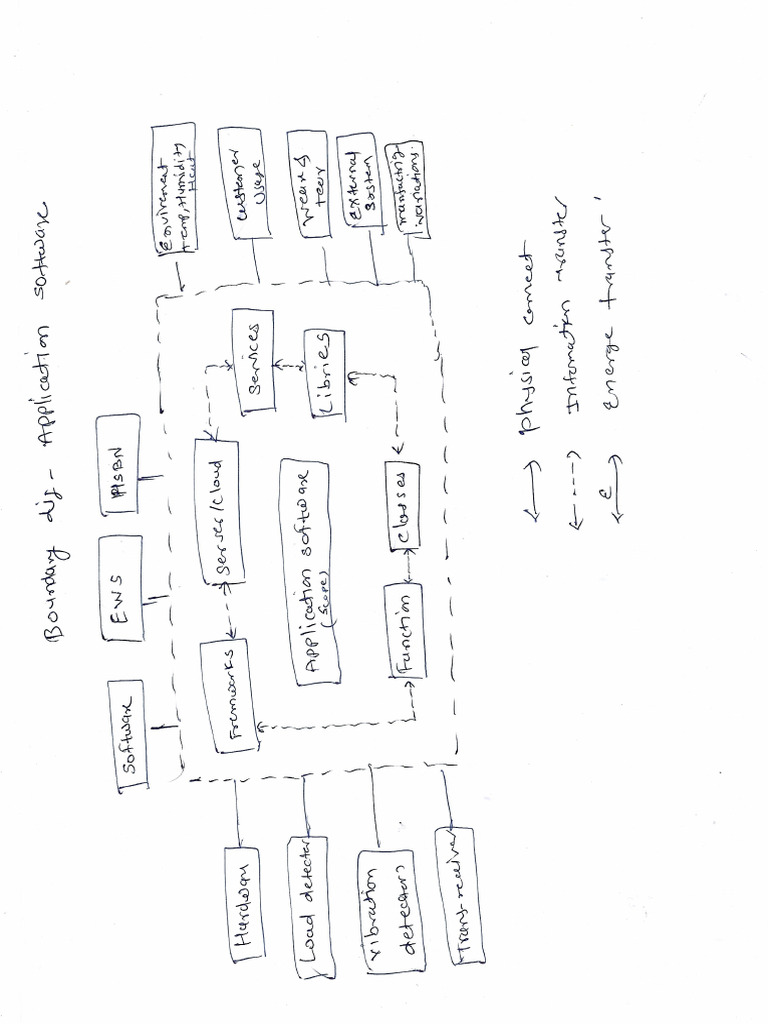 Boundary dig - Application software
Software
EWS
Hardware
Load detector
Vibration
detectors
Trans-receiver
Fremworks
Server/cloud
Services
Libries
Application software
(scope)
Function
Classes
Envirement
temp, Humidity
Heat
Customer
Usage
wear &
tear
External
System
manufactrig
variations.
Physical conect
Information transfer
E
Energe transfer